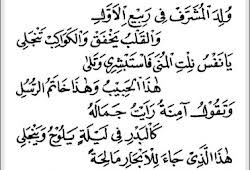 وُلِدَ الْمُشَرَّفُ فِي رَبِيعِ الْأَوَّلِ
وَالْقَلْبُ يَخْفَقُ وَالْكَوَاكِبُ تَنْجَلِي
يَا نَفْسُ نِلْتِ الْمُنَى فَاسْتَبْشِرِي وَتَلَى
هٰذَا الْحَبِيْبُ وَهٰذَا خَاتَمُ الرُّسُلِ
وَتَقُوْلُ آمِنَةُ رَأَيْتُ جَمَالَهُ
كَالْبَدْرِ فِي لَيْلَةٍ يَلُوْحُ وَيَنْجَلِي
هٰذَا الَّذِي جَاءَ لِلْأَبْحَارِ مَالِحَةً